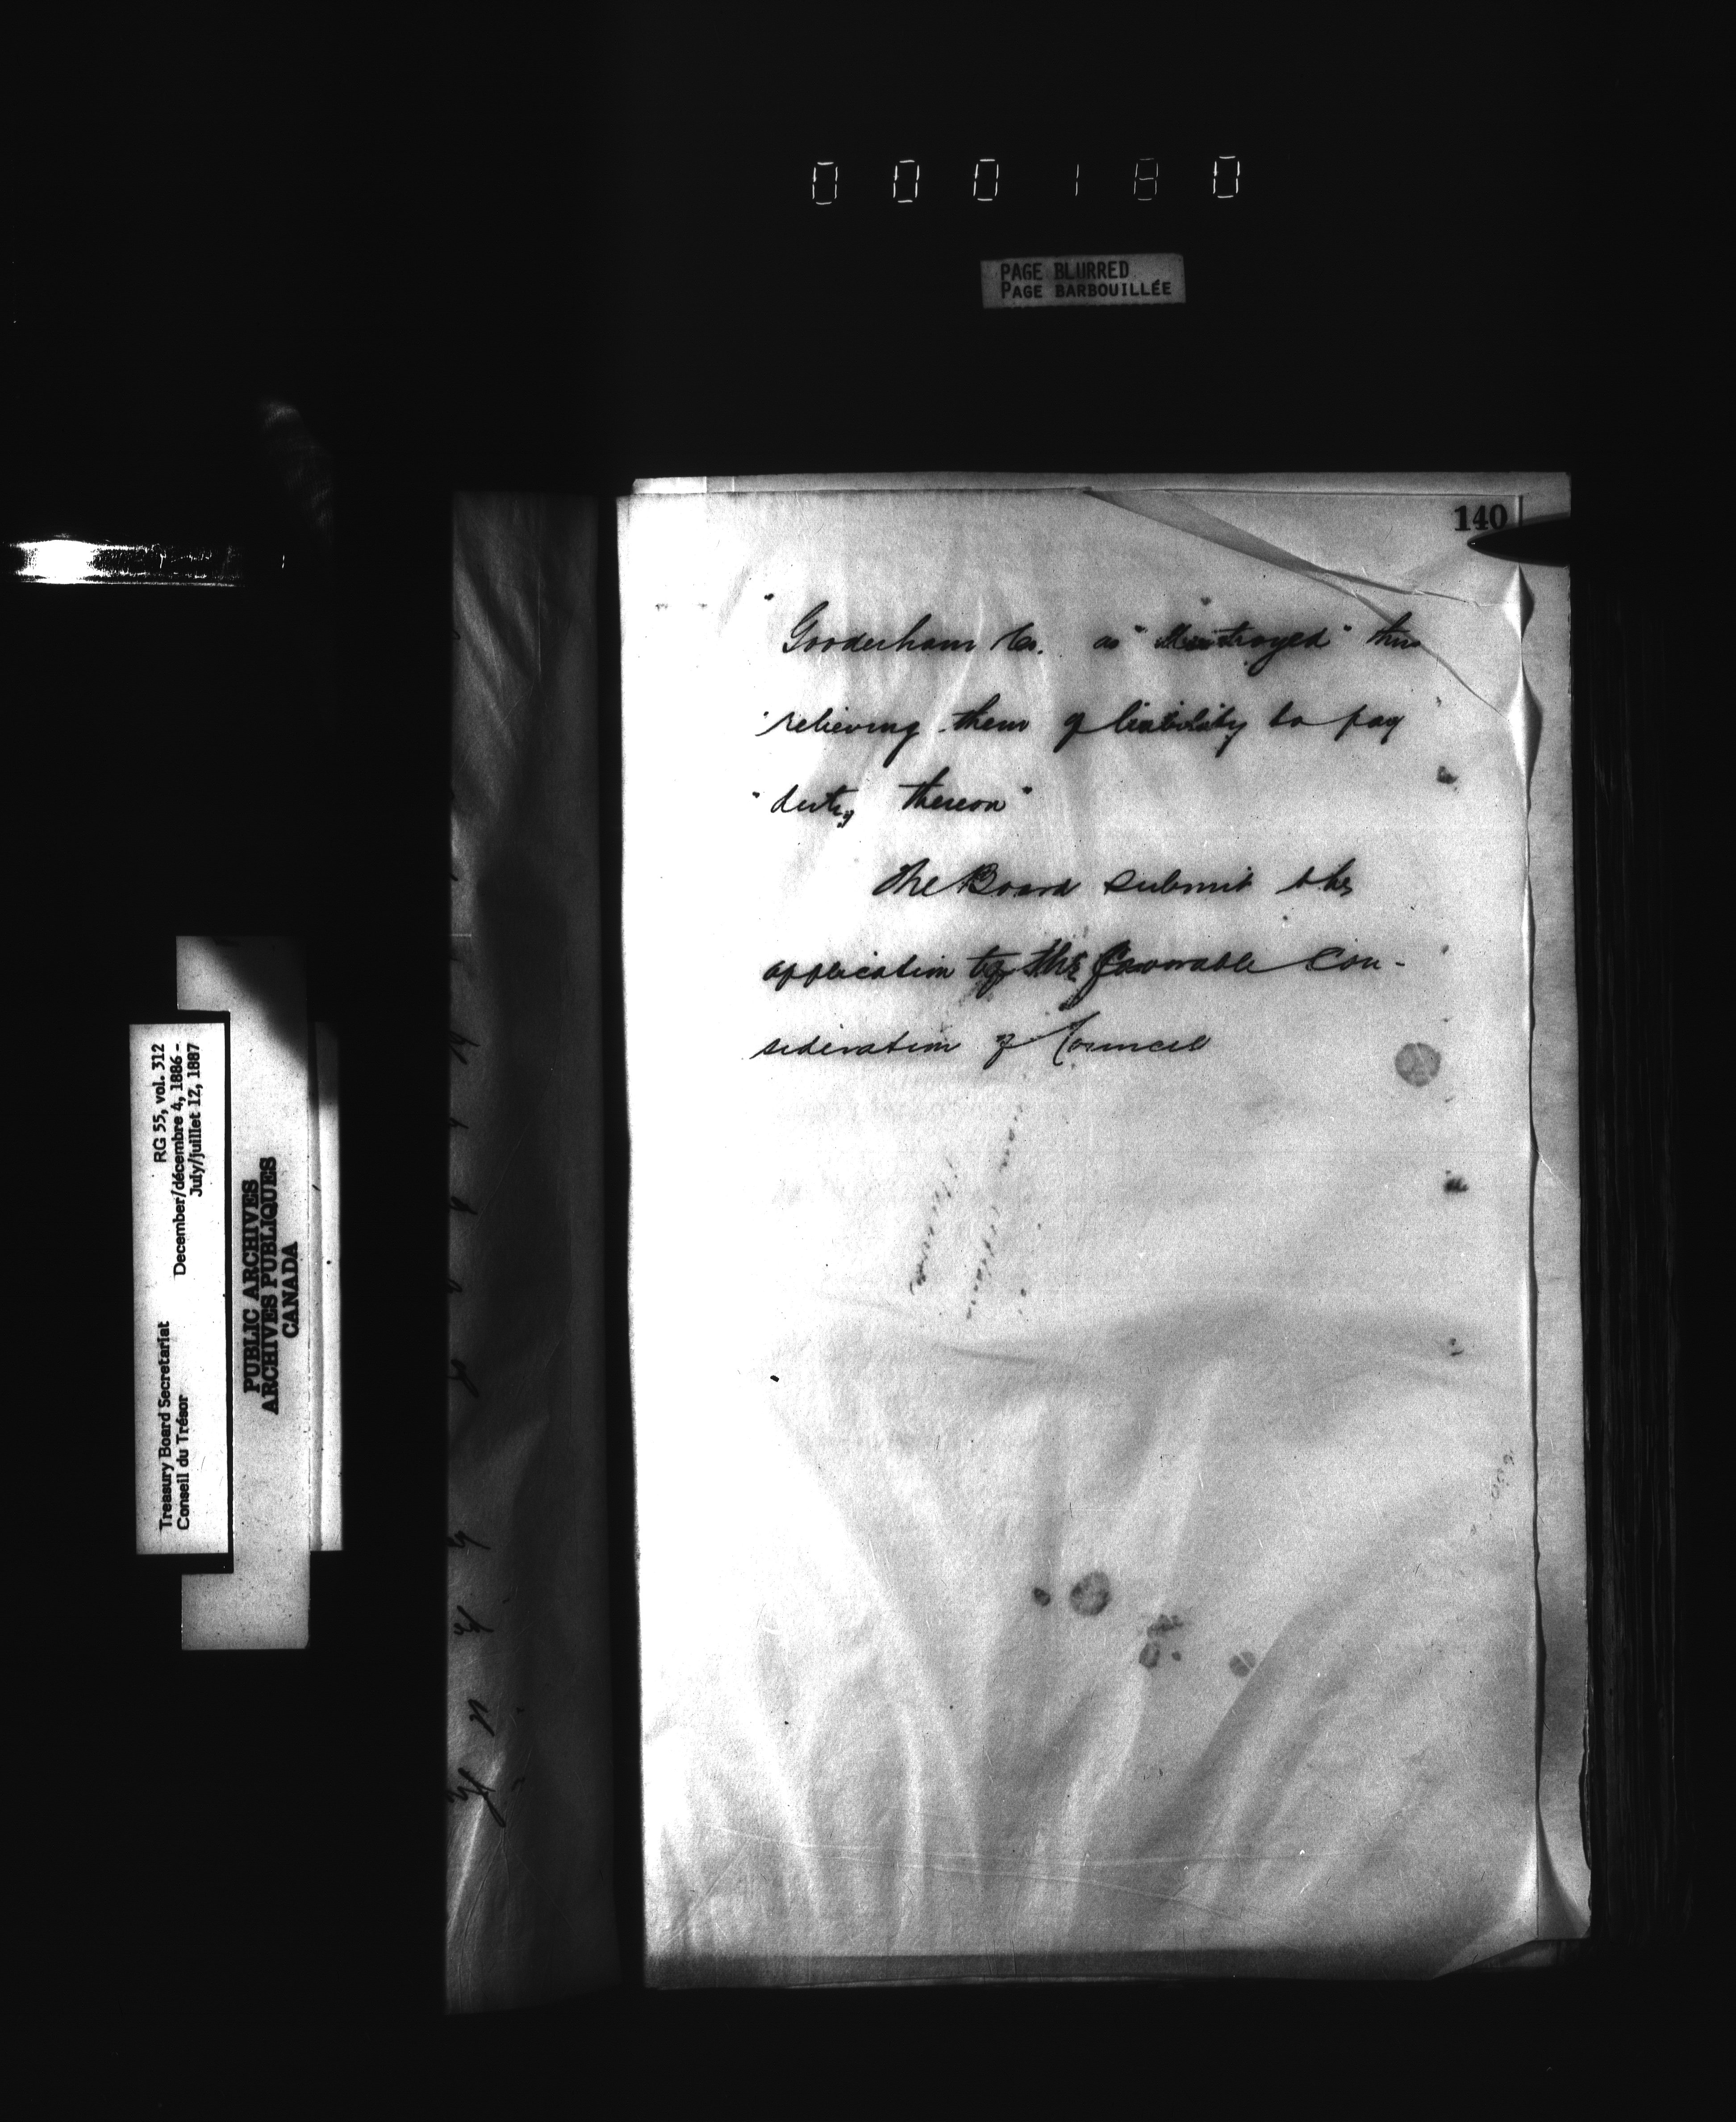 000180
PAGE BLURRED
PAGE BARBOUILLÉE
140
" Gooderham Co. as "destroyed" thus
" relieving them of liability to pay
" duty thereon"
The Board submit the
application to the favorable con-
sideration of Council
Treasury Board Secretariat RG 55, vol. 312
Conseil du Trésor December/décembre 4, 1886 -
July/juillet 12, 1887
PUBLIC ARCHIVES
ARCHIVES PUBLIQUES
CANADA